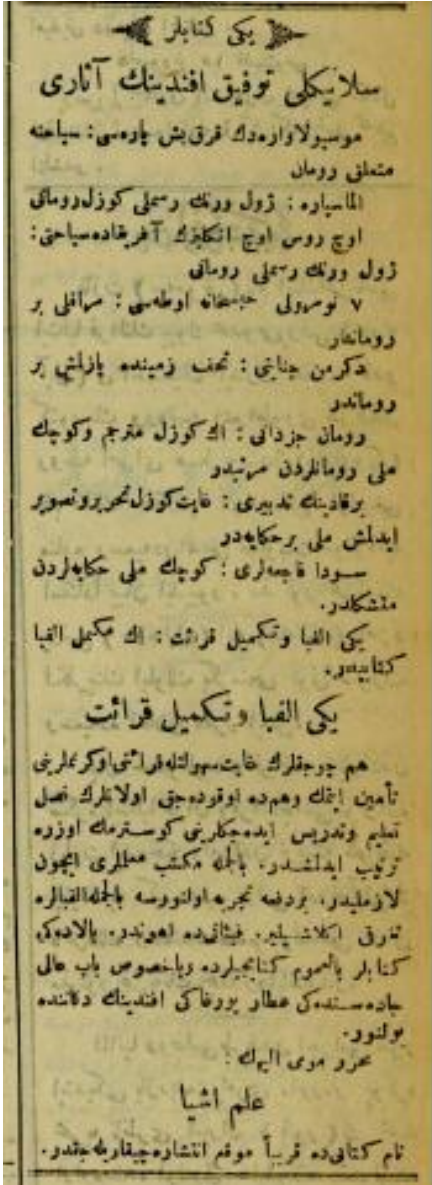 یكی كتابلر
سلانیكلی توفیق افندینك آثاری
موسیو لاواره‌دك قرق بش پاره‌سی : سیاحته
متعلق رومان
الماسپاره : ژول ورنك رسملی كوزل رومانی
اوچ روس اوچ انكلیزك آفریقاده سیاحتی :
ژول ورنك رسملی رومانی
۷ نومرولی حبسخانه اوطه‌سی : مراقلی بر
روماندر
دكرمن جنایتی : تحف زمینده یازلمش بر
روماندر
رومان جزدانی : اك كوزل مترجم و كوچك
ملی رومانلردن مرتبدر
برقادینك تدبیری : غایت كوزل تحریر و تصویر
ایدلمش ملی بر حكایه‌در
ســودا فاجعه‌لری : كوچك ملی حكایه‌لردن
متشكلدر.
یكی الفبا و تكمیل قرائت : اك مكمل الفبا
كتابیدر.
یكی الفبا و تكمیل قرائت
هم چوجقلرك غایت سهولتله قرائتی اوكرنملرینی
تأمین ایتمك و هم‌ده اوقوده‌جق اولانلرك نصل
تعلیم و تدریس ایده‌جكلرینی كوســترمك اوزره
ترتیب ایدلمشــدر. بالجمله مكتب معلملری ایچون
لازملیدر. بردفعه تجربه اولنورسه بالجمله الفبالره
تفرقی اكلاشــیلیر. فیئاتی‌ده اهوندر. بالاده‌كی
كتابلر بالعموم كتابجیلرده و باخصوص باب عالی
جاده‌ســنده‌كی عطار یورغاكی افندینك دكاننده
بولنور.
محرر مومی الیهك :
علم اشیا
نام كتابی‌ده قریباً موقع انتشاره چیقاریله‌جقدر.